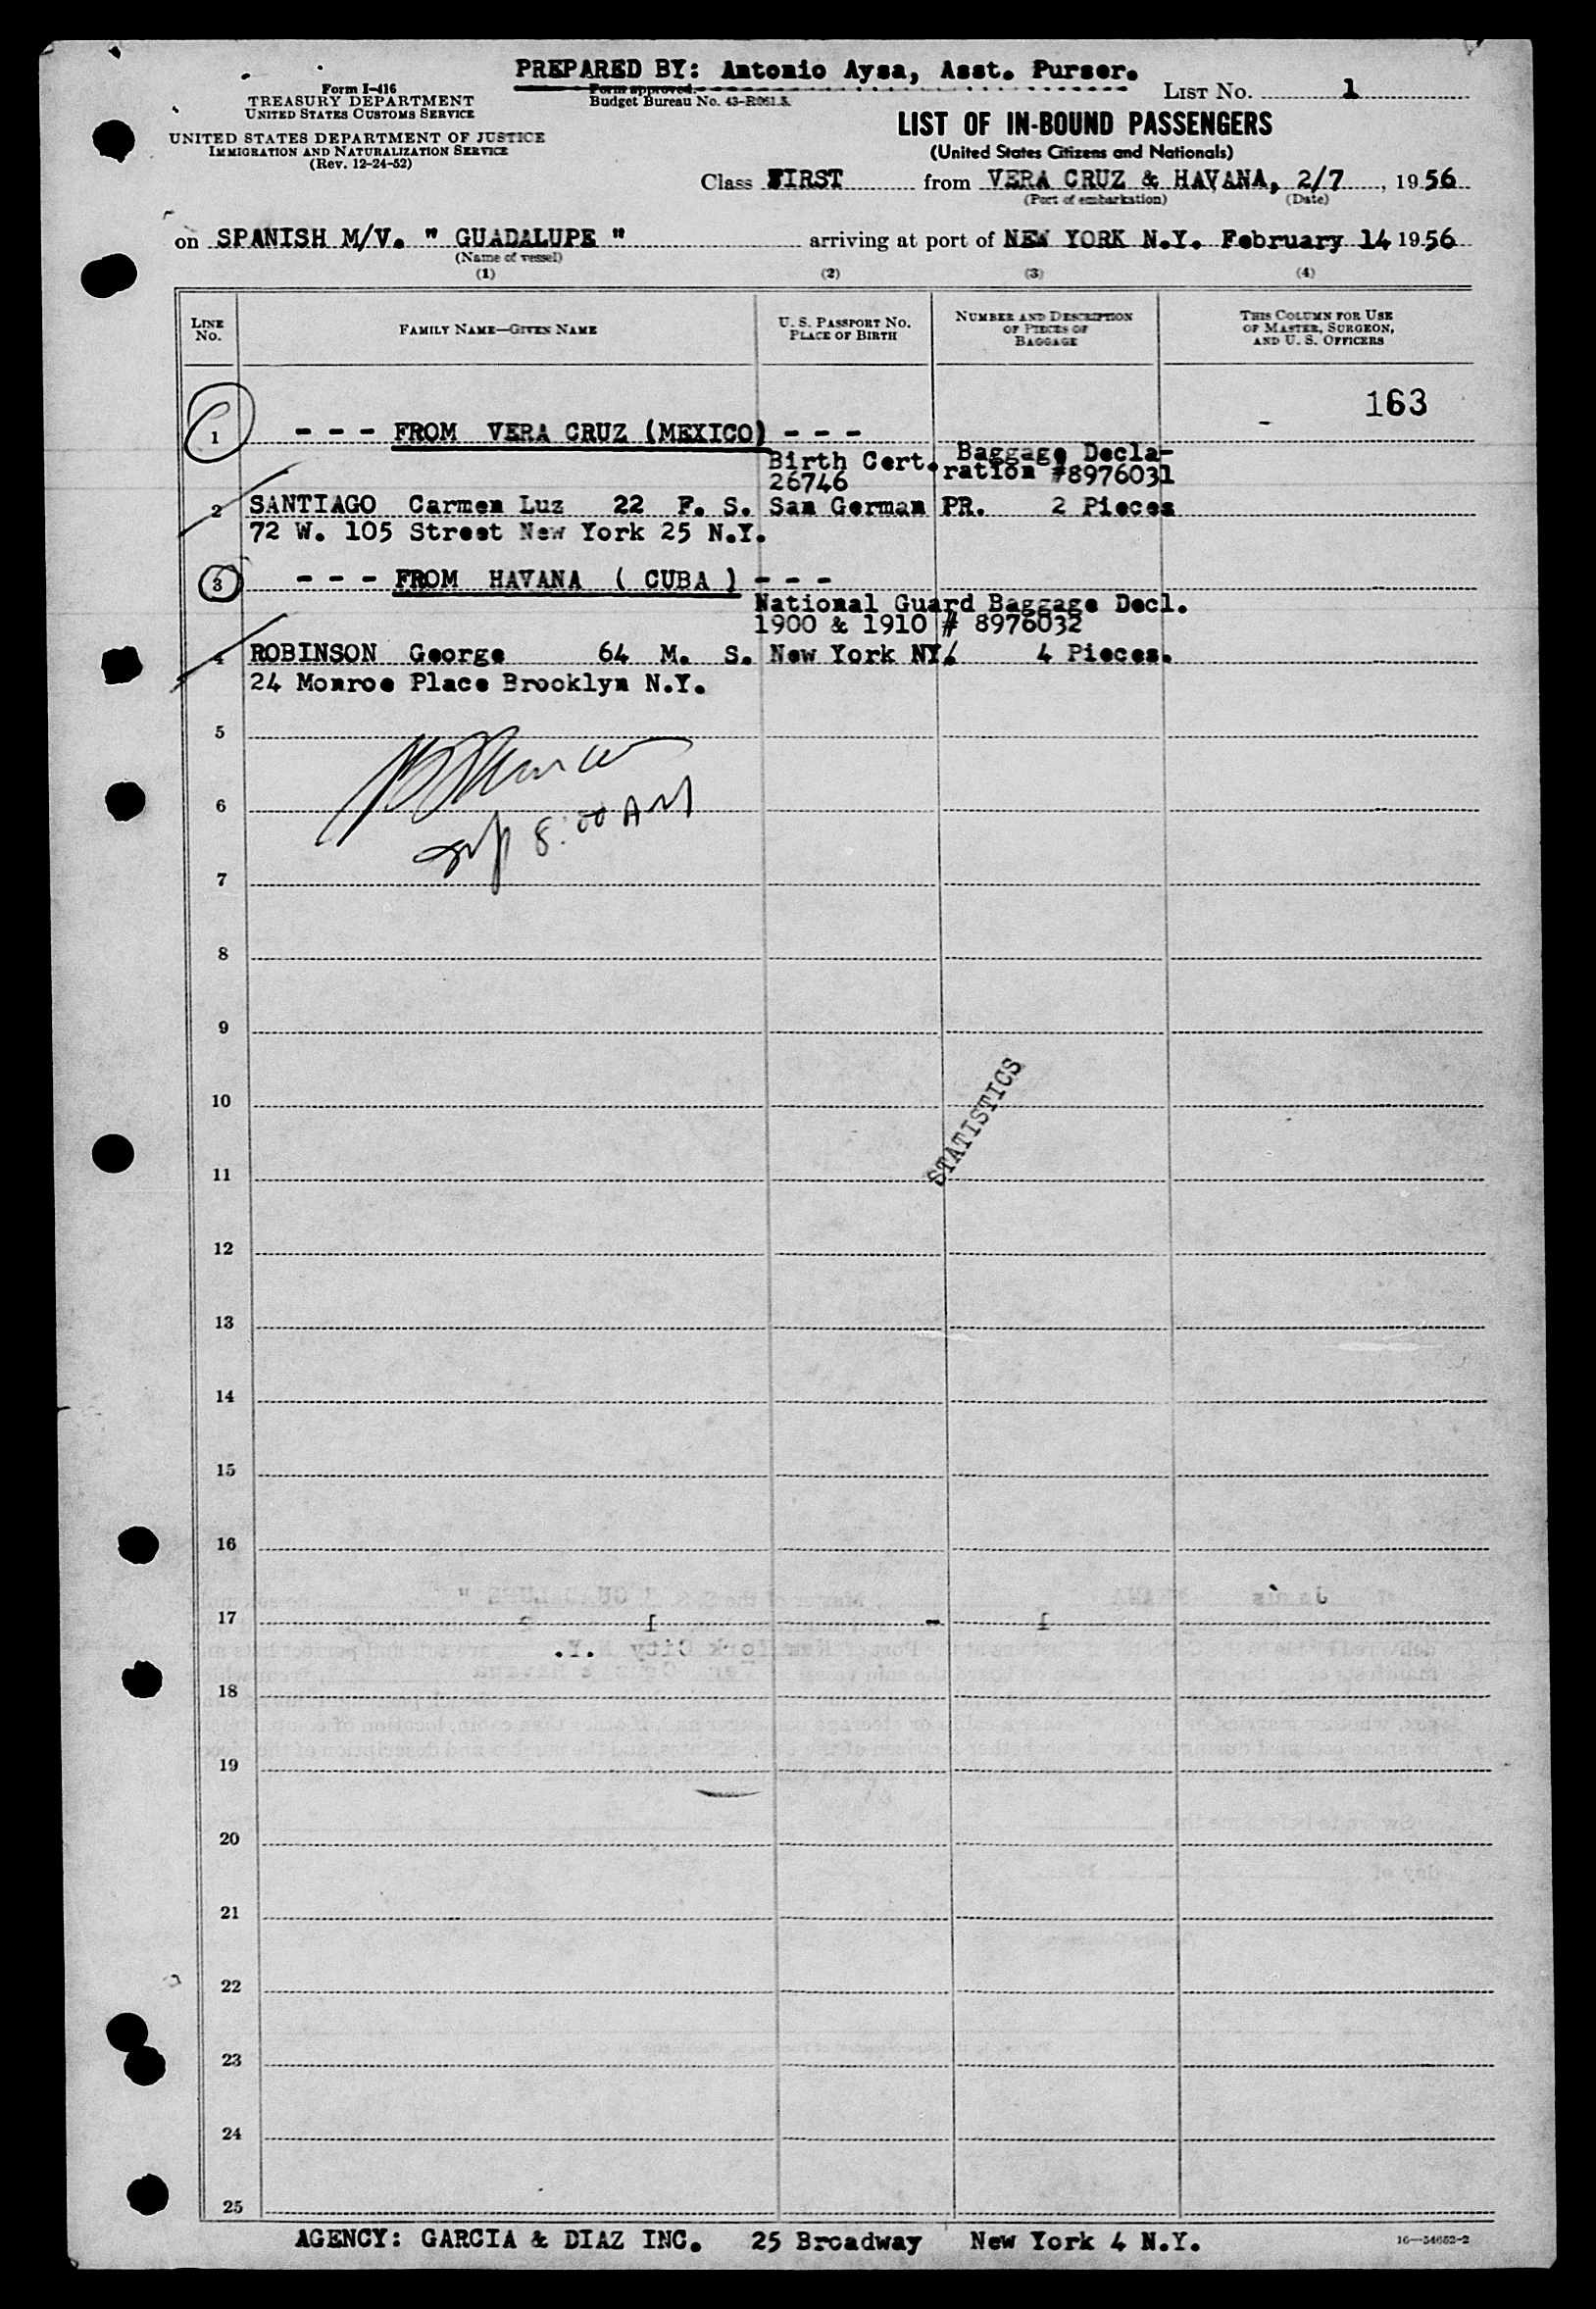 PREPARED BY: Antonio Aysa, Asst. Purser.
Form I-416
TREASURY DEPARTMENT
UNITED STATES CUSTOMS SERVICE
UNITED STATES DEPARTMENT OF JUSTICE
IMMIGRATION AND NATURALIZATION SERVICE
(Rev. 12-24-52)
Form approved.
Budget Bureau No. 43-R061.3.
LIST NO. 1
LIST OF IN-BOUND PASSENGERS
(United States Citizens and Nationals)
Class FIRST from VERA CRUZ & HAVANA, 2/7, 1956
(Port of embarkation) (Date)
on SPANISH M/V. " GUADALUPE " arriving at port of NEW YORK N.Y. February 14 1956
(Name of vessel)
(1) (2) (3) (4)
LINE NO.
FAMILY NAME—GIVEN NAME
U. S. PASSPORT NO.
PLACE OF BIRTH
NUMBER AND DESCRIPTION
OF PIECES OF
BAGGAGE
THIS COLUMN FOR USE
OF MASTER, SURGEON,
AND U. S. OFFICERS
163
1 - - - FROM VERA CRUZ (MEXICO) - - -
Birth Cert. Baggage Decla-
26746 ration #8976031
2 SANTIAGO Carmen Luz 22 F. S. San German PR. 2 Pieces
72 W. 105 Street New York 25 N.Y.
3 - - - FROM HAVANA ( CUBA ) - - -
National Guard Baggage Decl.
1900 & 1910 # 8976032
4 ROBINSON George 64 M. S. New York NY. 4 Pieces.
24 Monroe Place Brooklyn N.Y.
5
6
8:00 AM
7
8
9
10
STATISTICS
11
12
13
14
15
16
17
18
19
20
21
22
23
24
25
AGENCY: GARCIA & DIAZ INC. 25 Broadway New York 4 N.Y.
16—54652-2